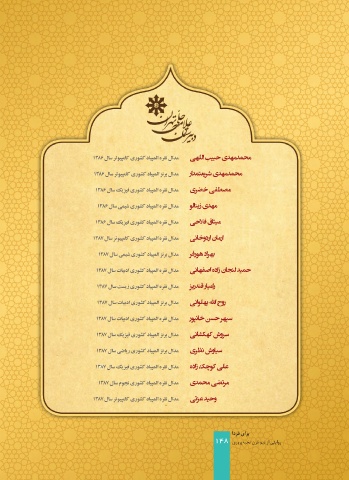 دبیرستان علامه حلی تهران
محمدمهدی حبیب اللهی مدال نقره المپیاد کشوری کامپیوتر سال ۱۳۸۶
محمدمهدی شریعتمدار مدال برنز المپیاد کشوری کامپیوتر سال ۱۳۸۶
مصطفی خضری مدال نقره المپیاد کشوری فیزیک سال ۱۳۸۶
مهدی زینالو مدال نقره المپیاد کشوری شیمی سال ۱۳۸۶
میثاق فلاحی مدال نقره المپیاد کشوری فیزیک سال ۱۳۸۶
آرمان اردوخانی مدال نقره المپیاد کشوری کامپیوتر سال ۱۳۸۷
بهراد هنودلر مدال برنز المپیاد کشوری شیمی سال ۱۳۸۷
حمید لنجان زاده اصفهانی مدال نقره المپیاد کشوری ادبیات سال ۱۳۸۷
رامیار قندریز مدال نقره المپیاد کشوری زیست سال ۱۳۸۷
روح الله پهلوانی مدال برنز المپیاد کشوری ادبیات سال ۱۳۸۷
سپهر حسن خانپور مدال نقره المپیاد کشوری ادبیات سال ۱۳۸۷
سروش کهکشانی مدال برنز المپیاد کشوری فیزیک سال ۱۳۸۷
سیاوش نظری مدال برنز المپیاد کشوری ریاضی سال ۱۳۸۷
علی کوچک زاده مدال نقره المپیاد کشوری فیزیک سال ۱۳۸۷
مرتضی محمدی مدال نقره المپیاد کشوری نجوم سال ۱۳۸۷
وحید مرتی مدال نقره المپیاد کشوری کامپیوتر سال ۱۳۸۷
برای فردا
۱۴۸